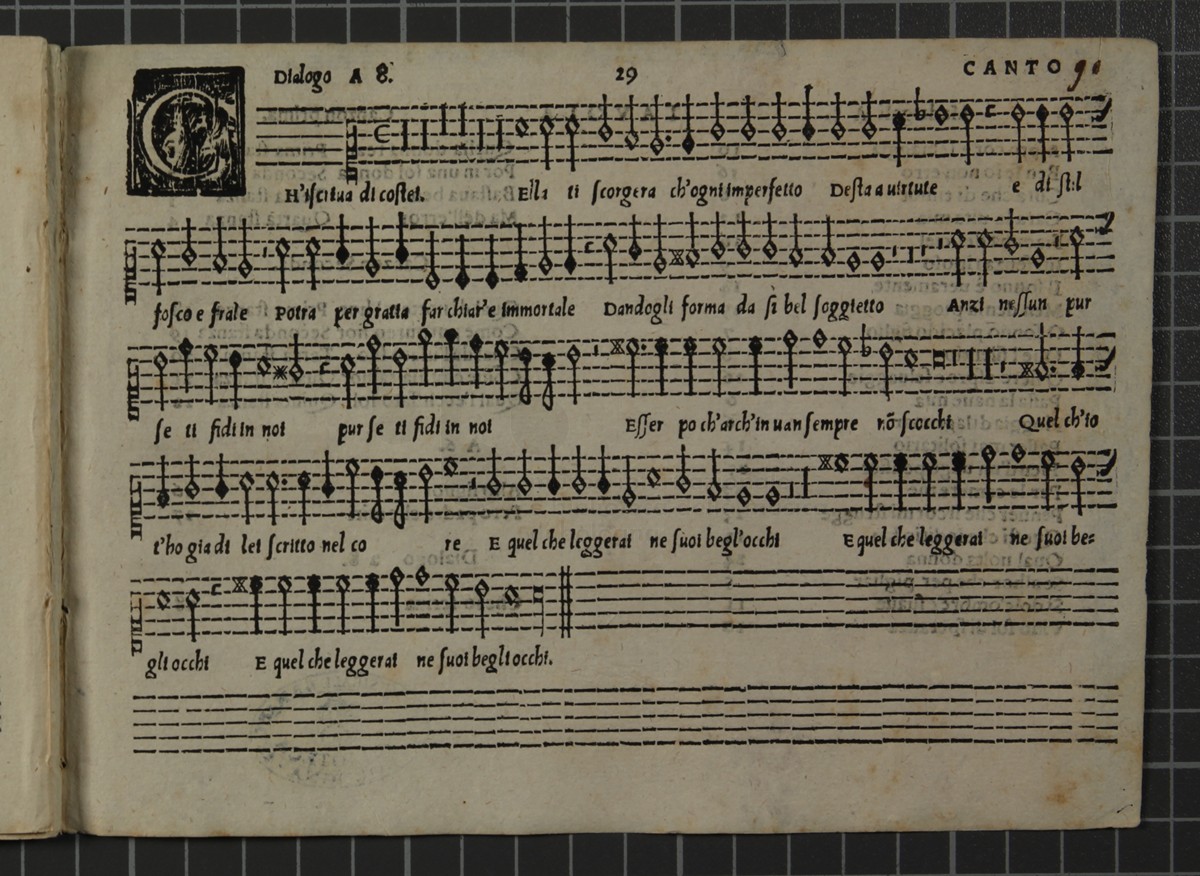 Dialogo A 8. 29 CANTO 91
CH'iscriua di costei. Ella ti scorgera ch'ogni imperfetto Desta a uirtute e di stil
fosco e frale Potra per gratia far chiar'e immortale Dandogli forma da si bel soggietto Anzi nessun pur
se ti fidi in noi pur se ti fidi in noi Esser po ch'arch'in uan sempre nõ scocchi Quel ch'io
t'ho gia di lei scritto nel co re E quel che leggerai ne suoi begl'occhi E quel che leggerai ne suoi be=
gli occhi E quel che leggerai ne suoi begli occhi.